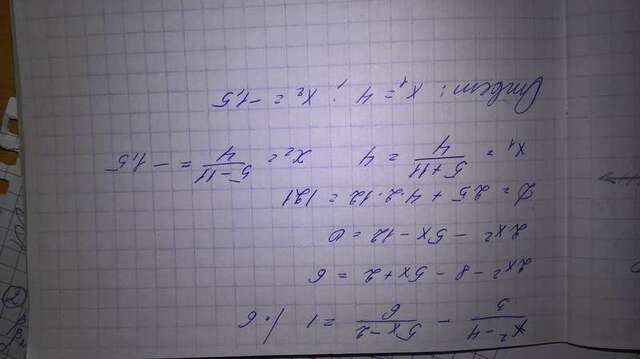 x² - 4 / 3 - 5x - 2 / 6 = 1 / · 6
2x² - 8 - 5x + 2 = 6
2x² - 5x - 12 = 0
D = 25 + 4 · 2 · 12 = 121
x₁ = 5 + 11 / 4 = 4 x₂ = 5 - 11 / 4 = - 1,5
Ответ: x₁ = 4 ; x₂ = -1,5